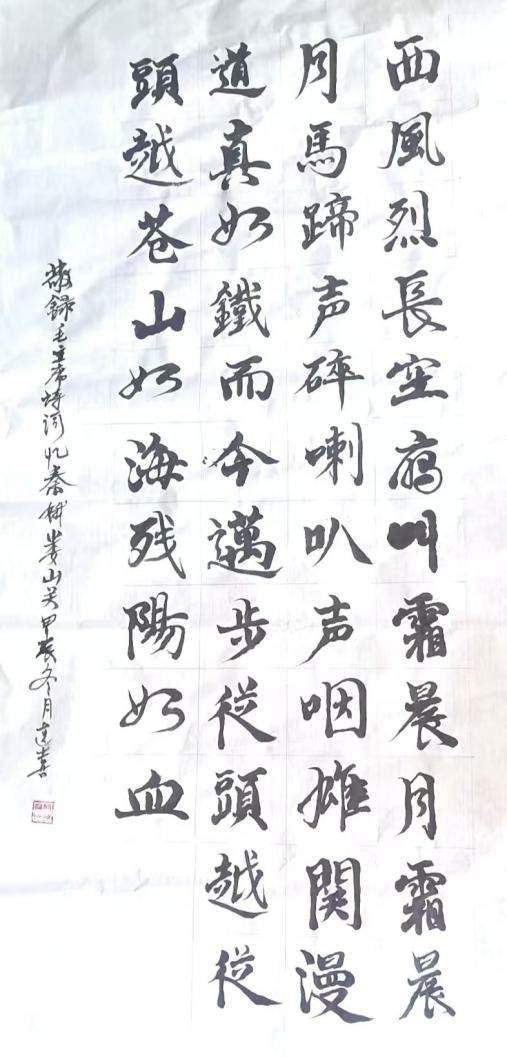 西風烈長空雁叫霜晨月霜晨
月馬蹄声碎喇叭声咽雄関漫
道真如鐵而今邁步従頭越従
頭越苍山如海残陽如血
敬録毛主席诗词忆秦娥娄山关甲辰冬月